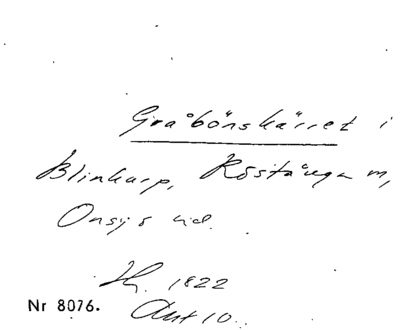 Gråbönskärret i
Blinkarp, Röstånga m,
Onsjö hd.
Hg. 1822
Akt 10.
Nr 8076.